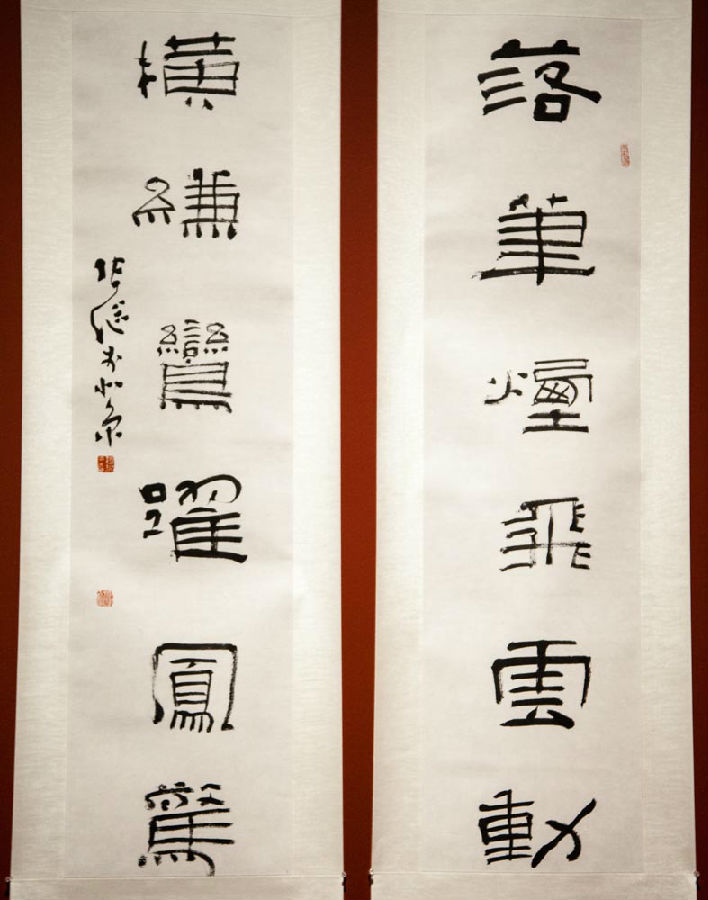 落筆煙飛雲動
橫縑鸞躍鳳驚
張繼於北京